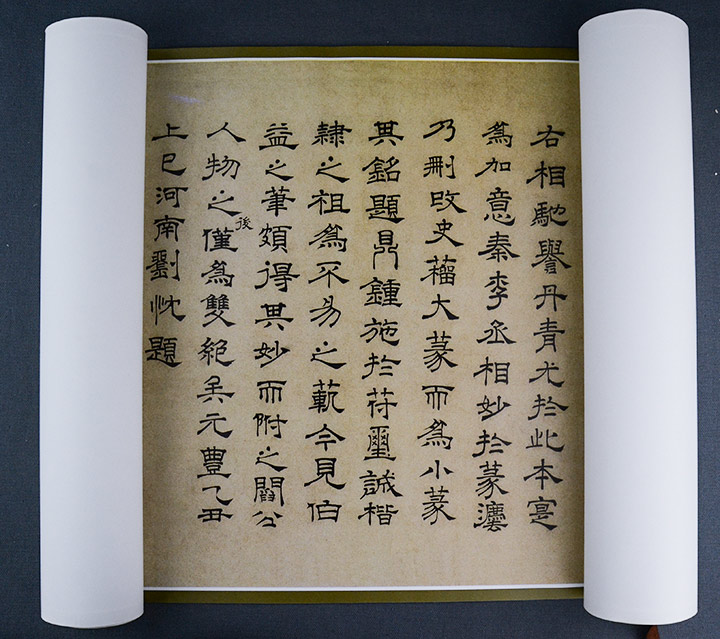 右相馳譽丹青尤於此本寔
爲加意秦李丞相妙於篆灋
乃刪改史籀大篆而爲小篆
其銘題鼎鍾施於符璽誠楷
隸之祖爲不易之範今見伯
益之筆頗得其妙而附之閻公
人物之後僅爲雙絕矣元豊乙丑
上巳河南劉忱題